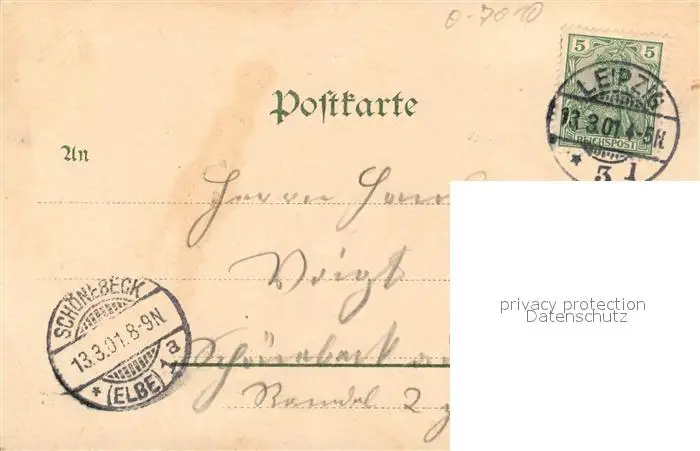 0-7010
5 5
REICHSPOST
LEIPZIG
13.3.01.4-5N
* 3 1
Postkarte
An
Herrn
privacy protection
Datenschutz
Voigt
SCHÖNEBECK
13.3.01.8-9N.
* (ELBE) 1a
Schönebeck a
2